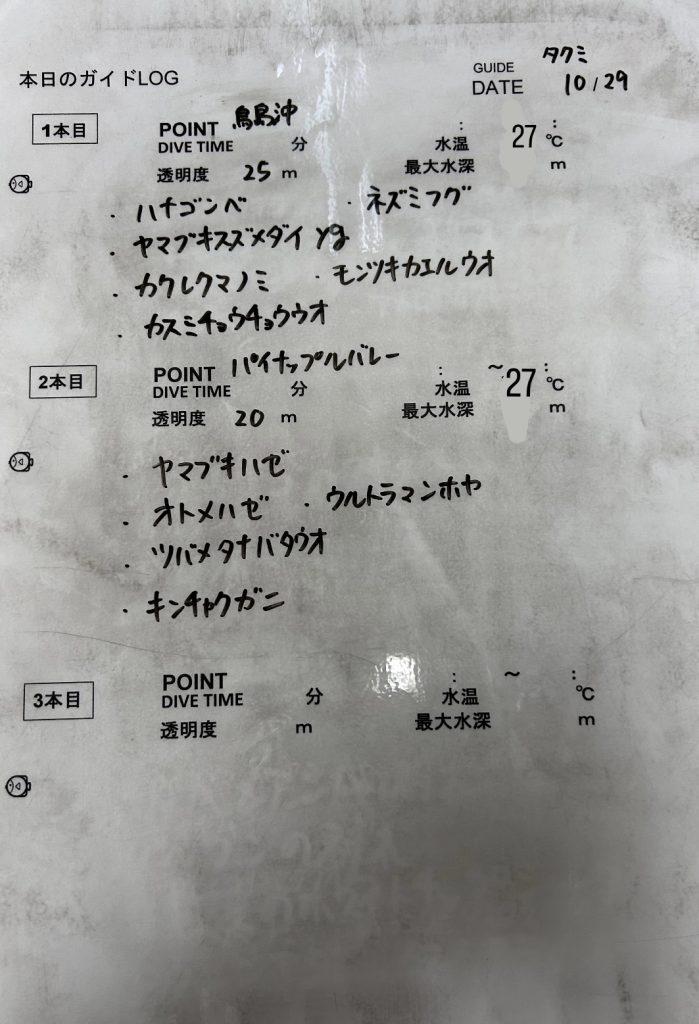 本日のガイドLOG
GUIDE タクミ
DATE 10/29
1本目
POINT 鳥島沖
DIVE TIME 分 :
水温 27 ℃ :
透明度 25 m
最大水深 m
・ハナゴンベ ・ネズミフグ
・ヤマブキスズメダイ yg
・カクレクマノミ ・モンツキカエルウオ
・カスミチョウチョウウオ
2本目
POINT パイナップルバレー
DIVE TIME 分 : ~ :
水温 27 ℃
透明度 20 m
最大水深 m
・ヤマブキハゼ
・オトメハゼ ・ウルトラマンホヤ
・ツバメタナバタウオ
・キンチャクガニ
3本目
POINT
DIVE TIME 分 : ~ :
水温 ℃
透明度 m
最大水深 m